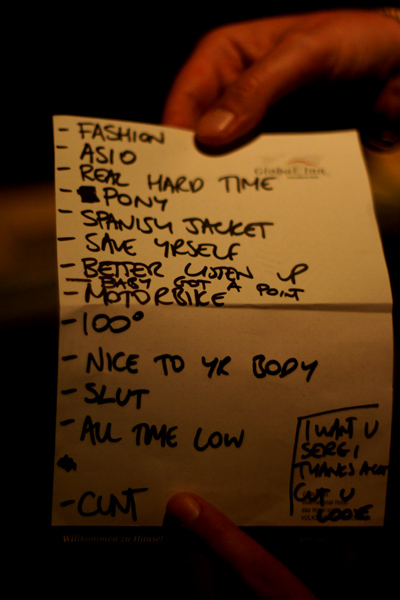 - FASHION
- ASIO
- REAL HARD TIME
- PONY
- SPANISH JACKET
- SAVE YRSELF
- BETTER LISTEN UP
- BABY GOT A POINT
- MOTORBIKE
- 100°
- NICE TO YR BODY
- SLUT
- ALL TIME LOW
- CUNT
Global Inn
I WANT U
SERGI
THANKS ALOT
CUNT U
Willkommen zu Hause!